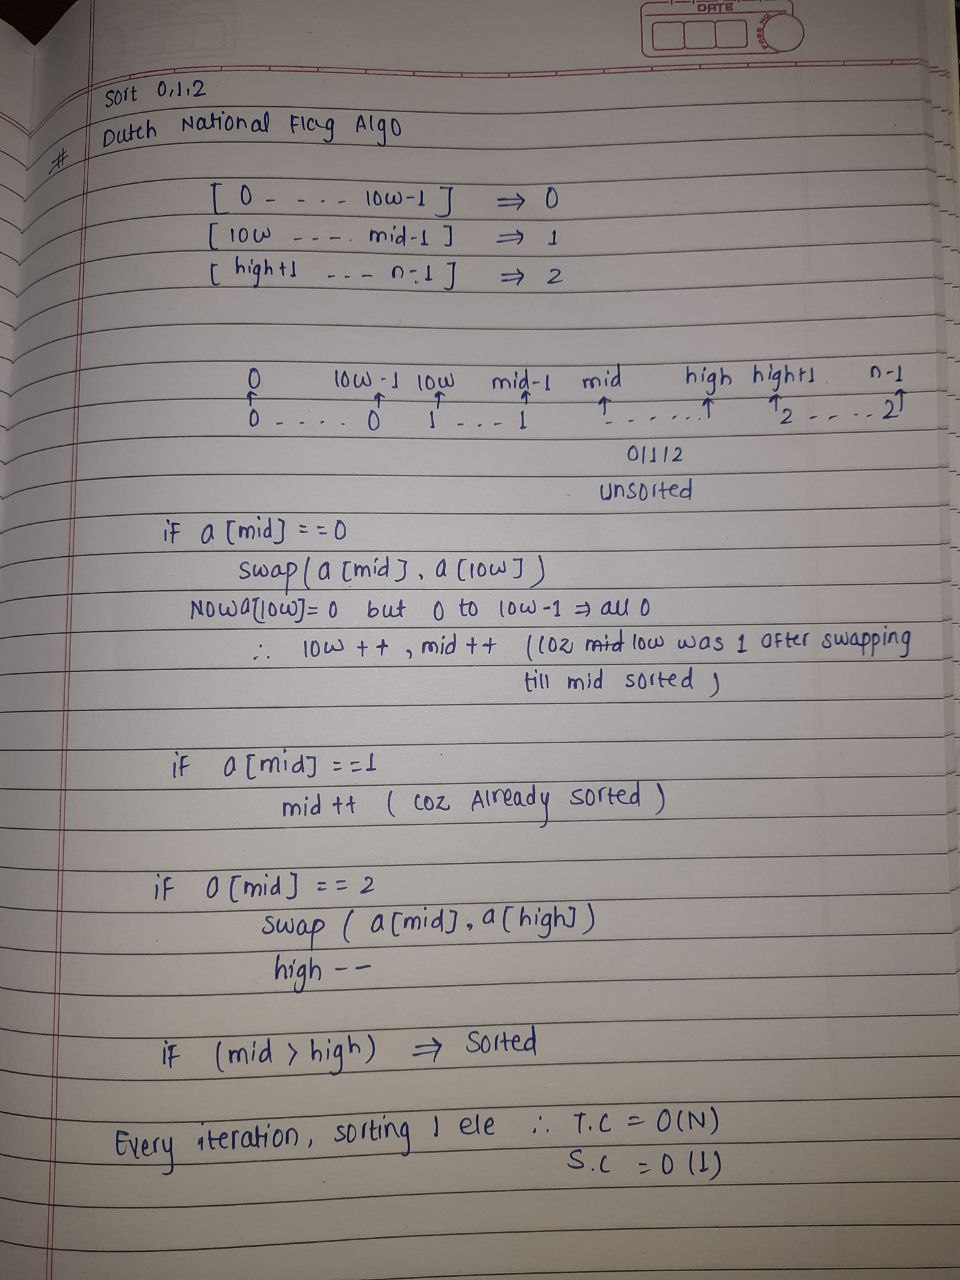 DATE
Sort 0,1,2
# Dutch National Flag Algo
[ 0 - . . - - low-1 ] ⇒ 0
[ low - - - -. mid-1 ] ⇒ 1
[ high+1 - - - n-1 ] ⇒ 2
0 low-1 low mid-1 mid high high+1 n-1
↑ ↑ ↑ ↑ ↑ ↑ ↑ ↑
0 - . . . 0 1 . - - 1 - . . . . . . 2 - - . . 2
0/1/2
unsorted
if a [mid] == 0
swap ( a [mid] , a [low] )
Now a[low] = 0 but 0 to low-1 ⇒ all 0
∴ low ++ , mid ++ (coz mid low was 1 after swapping
till mid sorted )
if a [mid] ==1
mid ++ ( coz Already sorted )
if a [mid] == 2
swap ( a [mid] , a [high] )
high --
if (mid > high) ⇒ Sorted
Every iteration, sorting 1 ele ∴ T.C = O(N)
S.C = O (1)